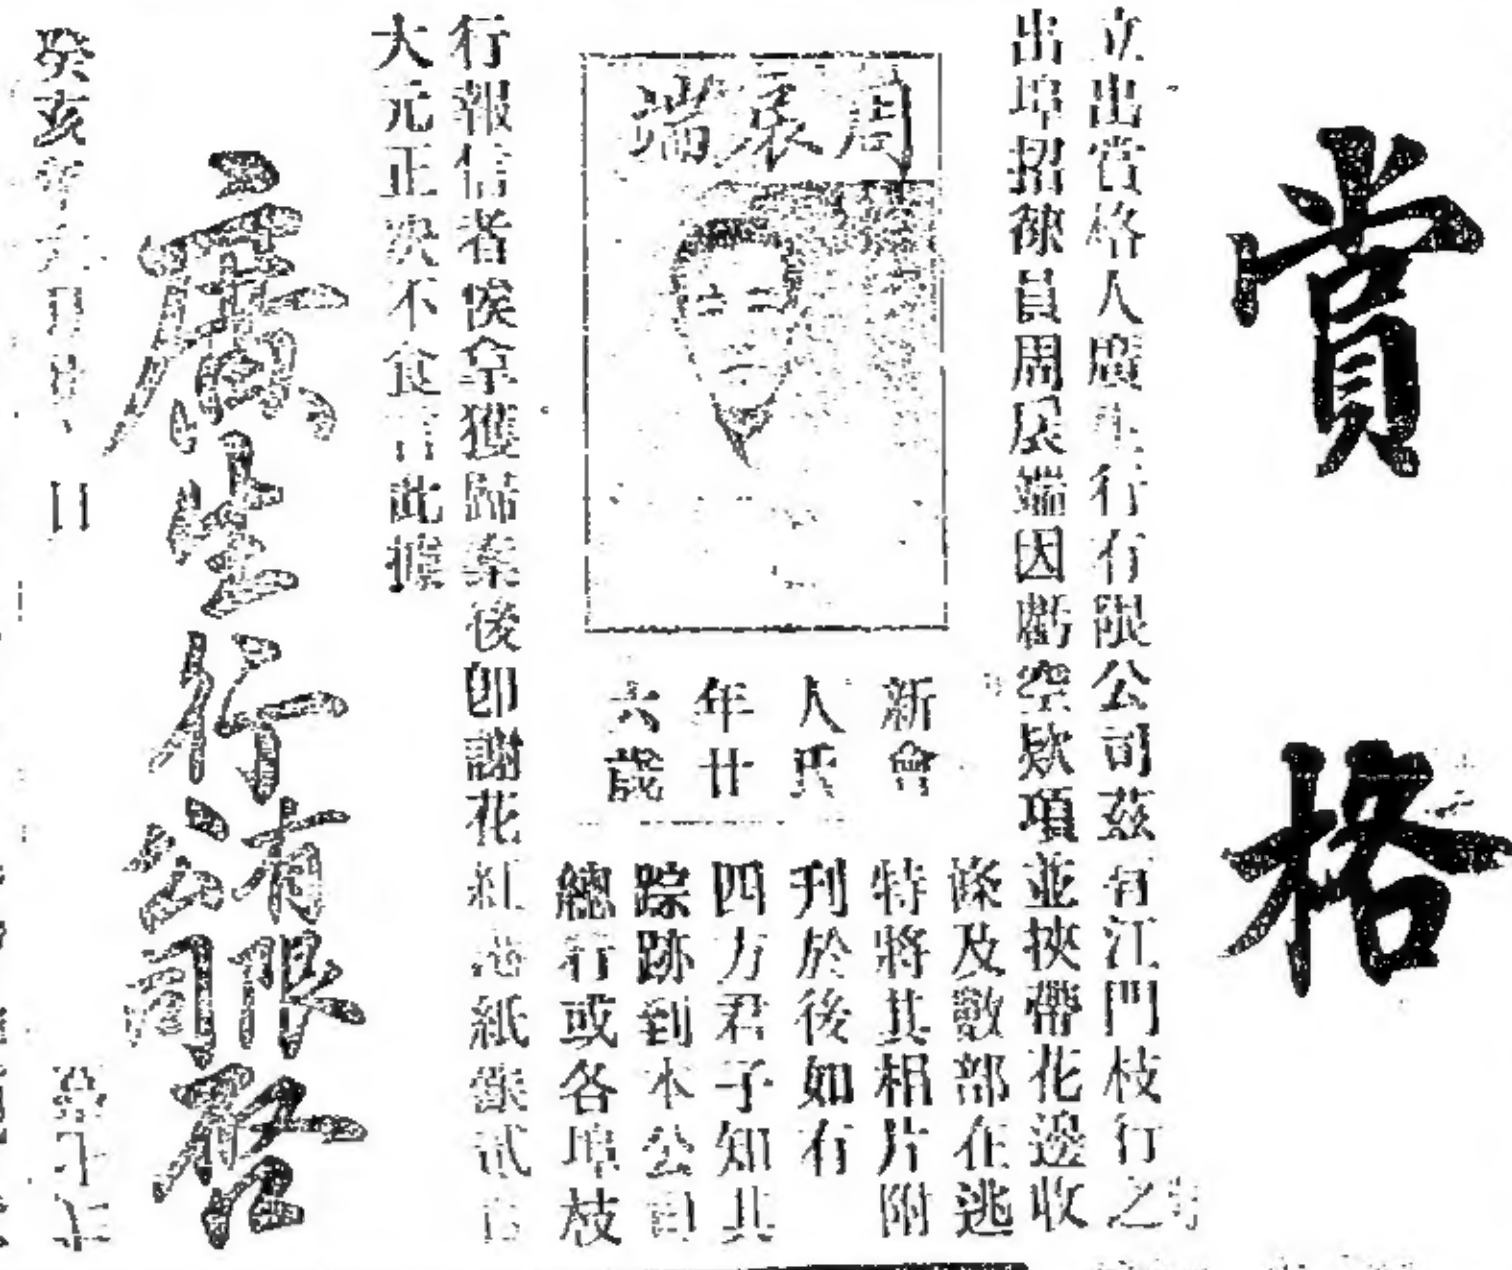 賞格
立出賞格人廣生行有限公司茲有江門枝行之
出埠招徠員周展端因虧空欵項並挾帶花邊收
條及數部在逃
特將其相片附
刋於後如有
四方君子知其
踪跡到本公司
總行或各埠枝
周展端
新會
人氏
年廿
六歲
行報信者俟拿獲歸案後卽謝花紅港紙銀贰百
大元正决不食言此據
廣生行有限公司啓
癸亥年 月 日